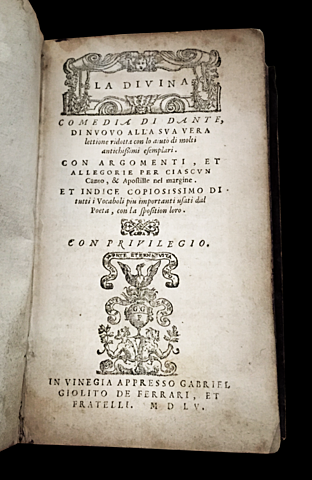 LA DIVINA
COMEDIA DI DANTE,
DI NVOVO ALLA SVA VERA
lettione ridotta con lo aiuto di molti
antichissimi esemplari.
CON ARGOMENTI, ET
ALLEGORIE PER CIASCVN
Canto, & Apostille nel margine.
ET INDICE COPIOSISSIMO DI
tutti i Vocaboli piu importanti usati dal
Poeta, con la sposition loro.
CON PRIVILEGIO.
IN VINEGIA APPRESSO GABRIEL
GIOLITO DE FERRARI, ET
FRATELLI. M D LV.